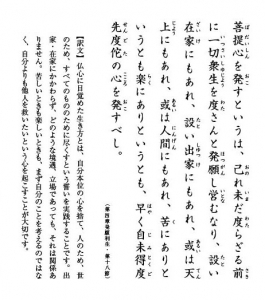 菩提心を発すというは、己れ未だ度らざる前
に一切衆生を度さんと発願し営むなり、設い
在家にもあれ、設い出家にもあれ、或は天
上にもあれ、或は人間にもあれ、苦にありと
いうとも楽にありというとも、早く自未得度
先度佗の心を発すべし。
(第四章発願利生・第十八節)
【訳文】仏心に目覚めた生き方とは、自分本位の心を捨て、人のため、世
のため、すべてのもののために尽くすという誓いを実践することです。出
家・在家にかかわらず、どのような境遇、立場であっても、それは関係あ
りません。苦しいときも楽しいときも、まず自分のことを考えるのではな
く、自分よりも他人を救いたいという心を起こすことが大切です。